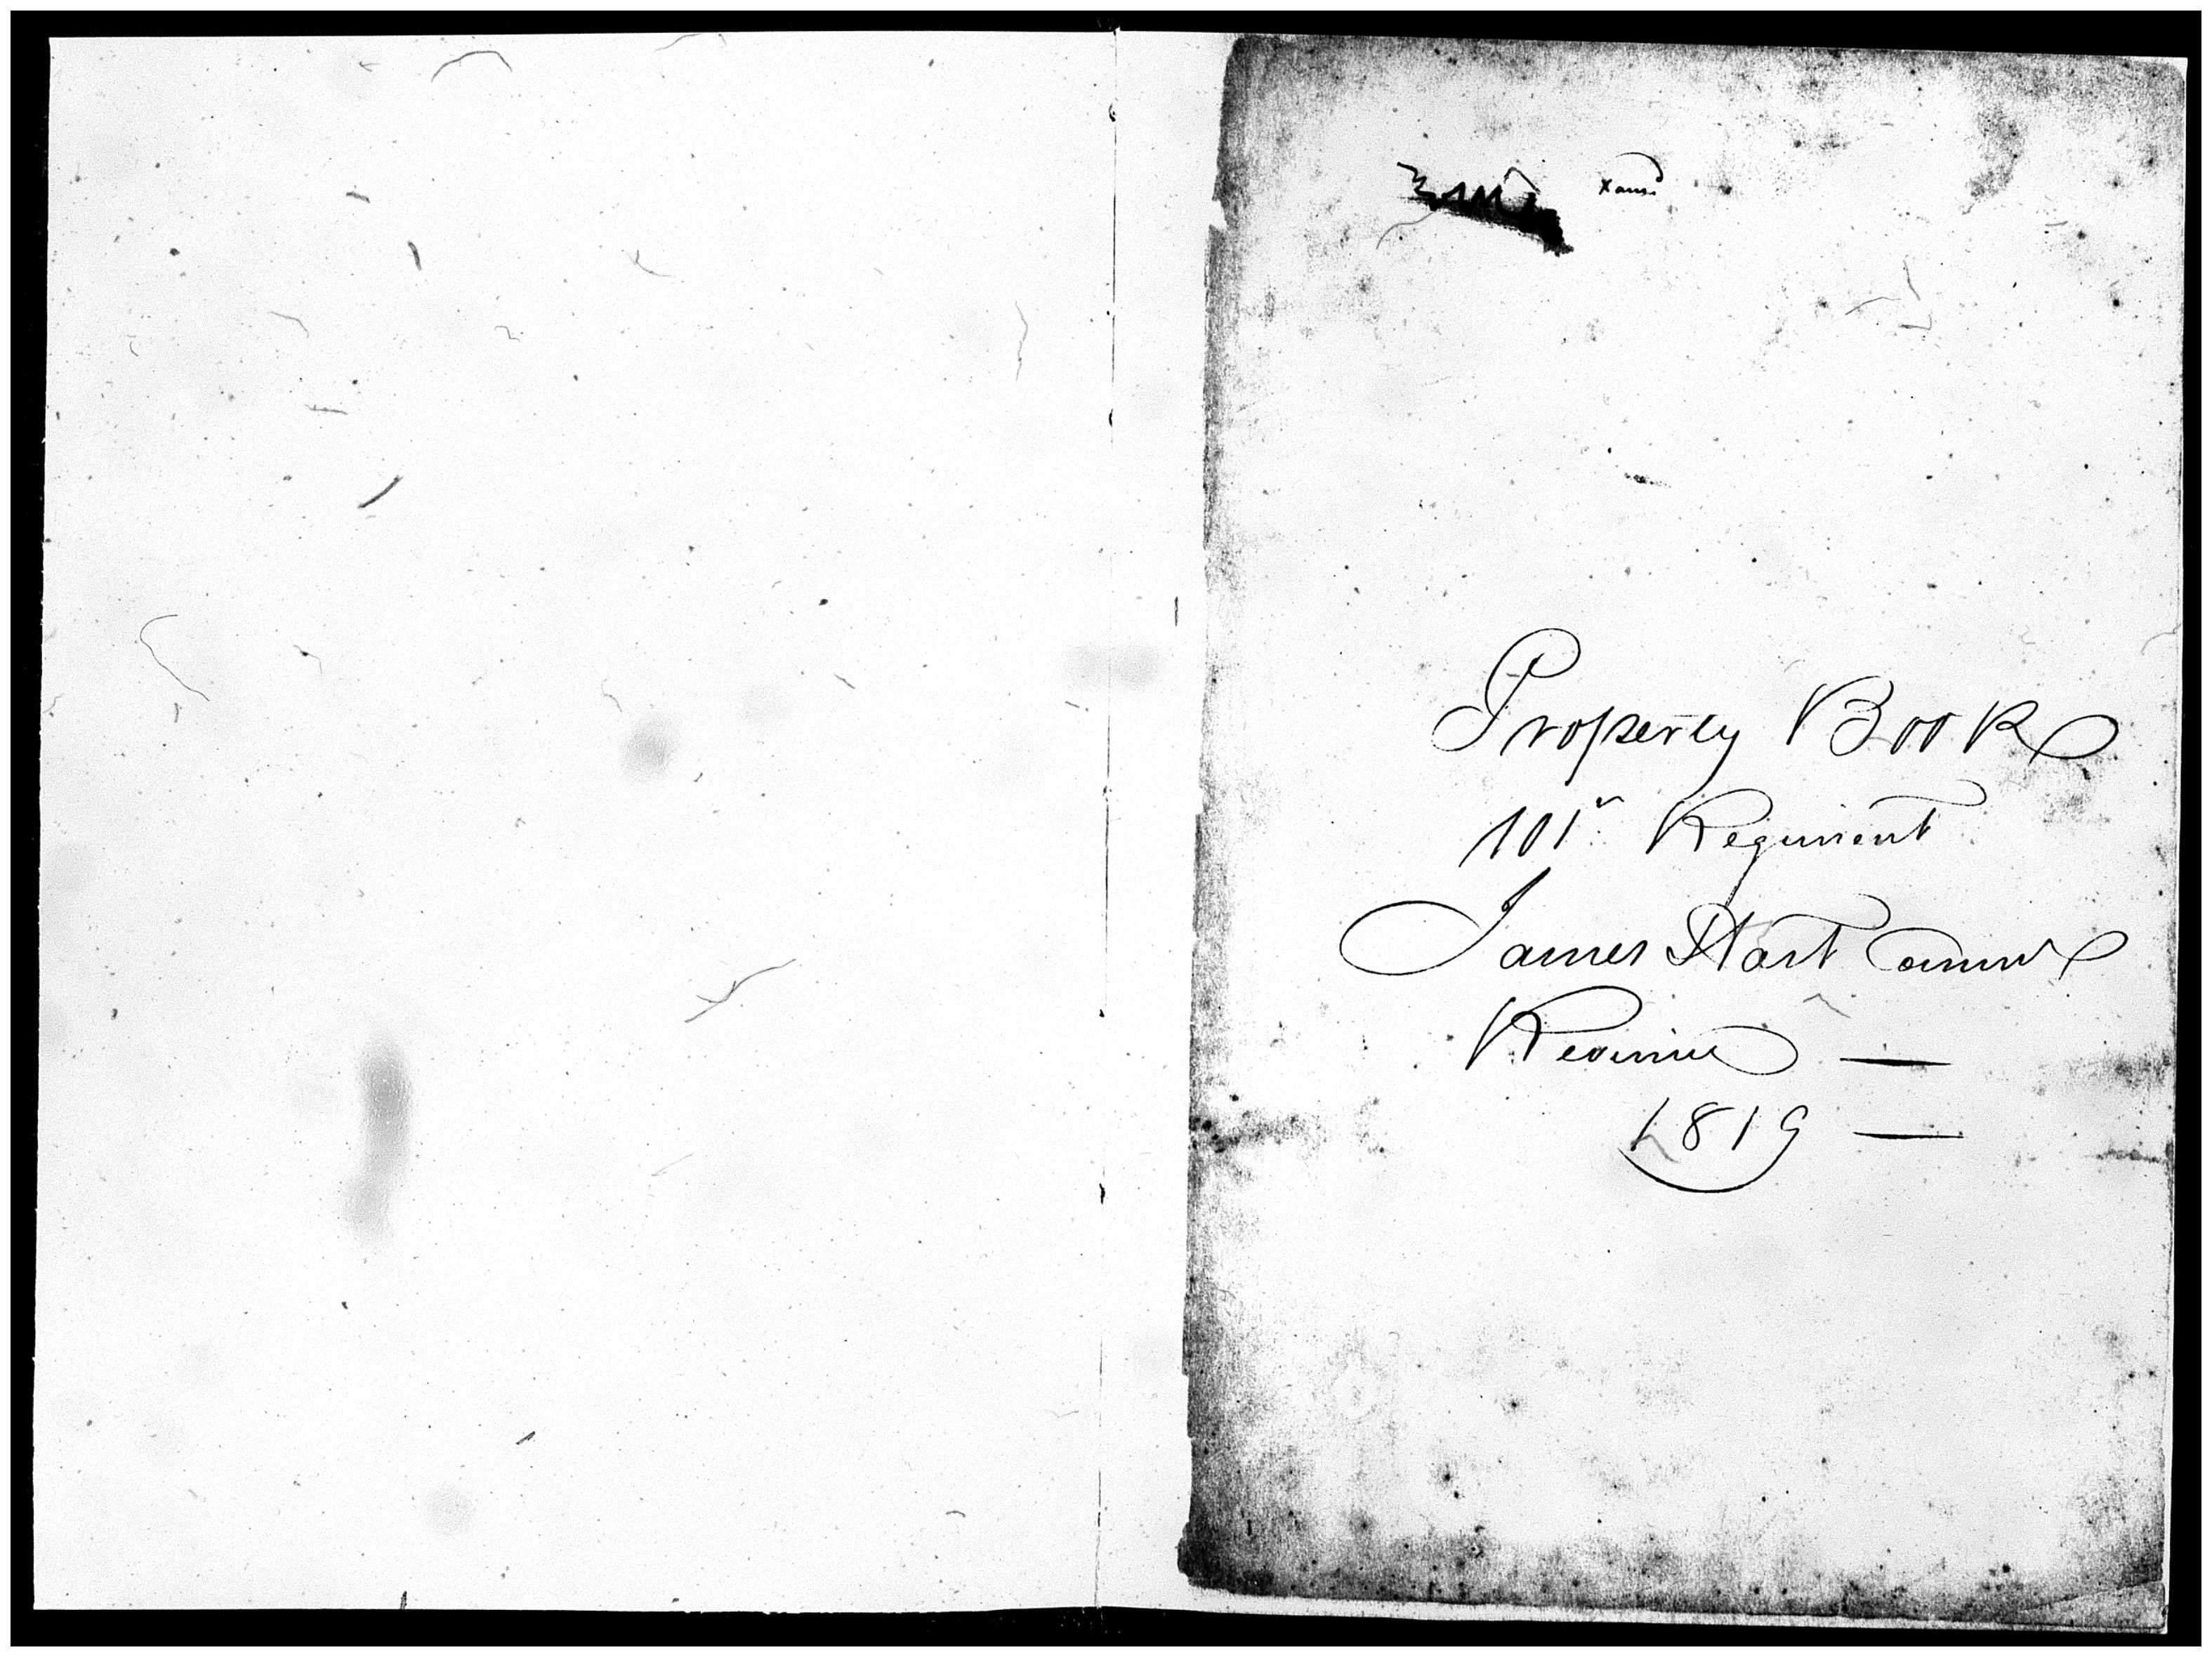 Xamd
Property Book
101st Regiment
James Hart Commr
Revenue —
1819 —